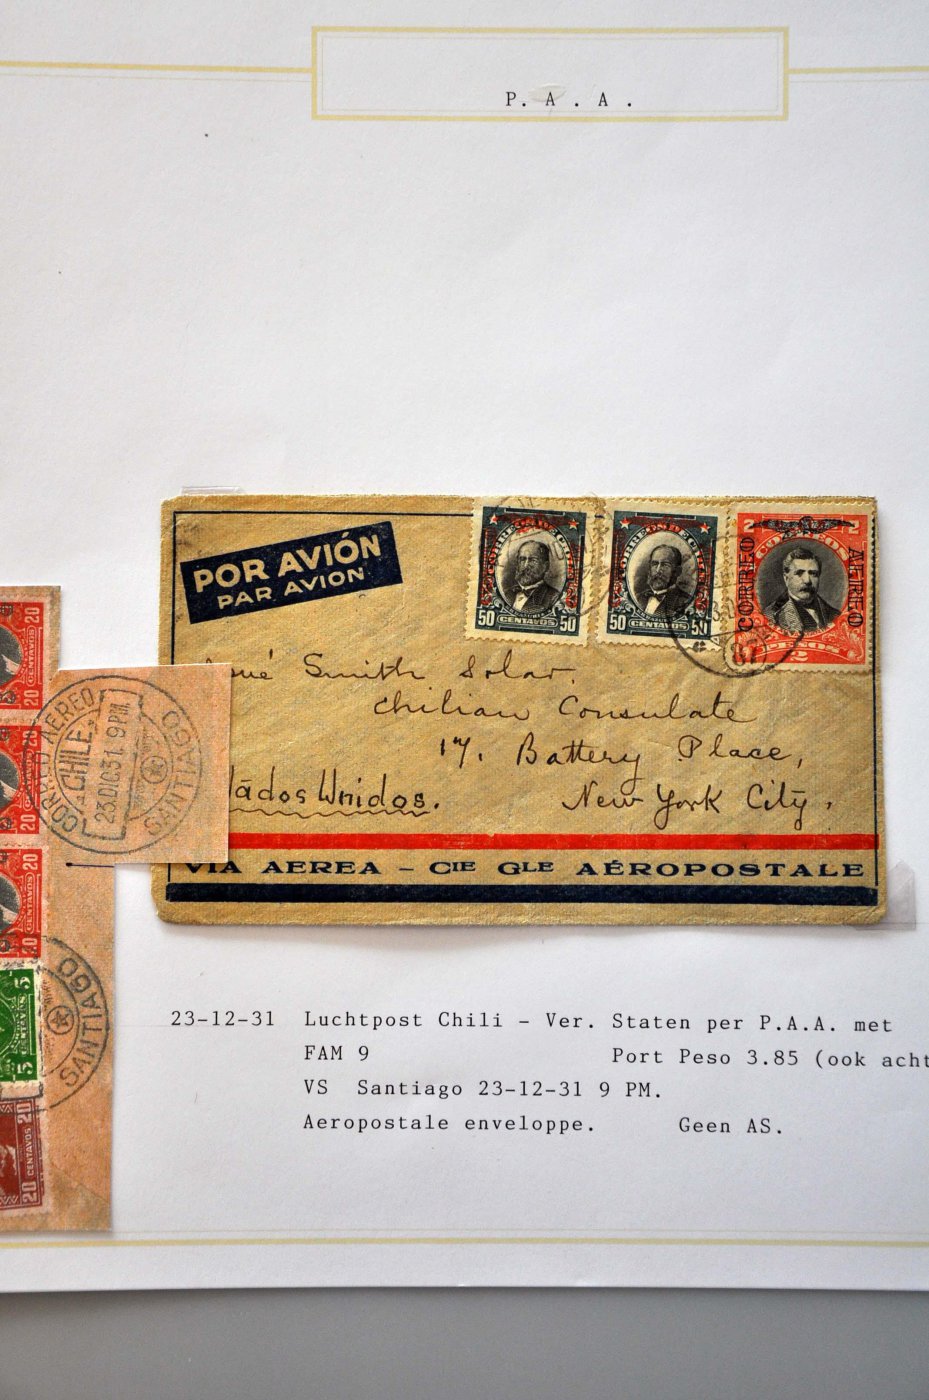 P. A . A .
POR AVIÓN
PAR AVION
50 CENTAVOS 50
50 CENTAVOS 50
2 2
CORREO AEREO
PESOS
2
87
Smith Solar.
Chilian Consulate
17, Battery Place,
New York City.
Unidos.
VIA AEREA – CIE GLE AÉROPOSTALE
CORREO AEREO
CHILE
23.DIC.31.9 PM.
SANTIAGO
20 CENTAVOS 20
20 CENTAVOS 20
20 CENTAVOS 20
5 CENTAVOS 5
SANTIAGO
20 CENTAVOS 20
23-12-31 Luchtpost Chili – Ver. Staten per P.A.A. met
FAM 9 Port Peso 3.85 (ook acht
VS Santiago 23-12-31 9 PM.
Aeropostale enveloppe. Geen AS.